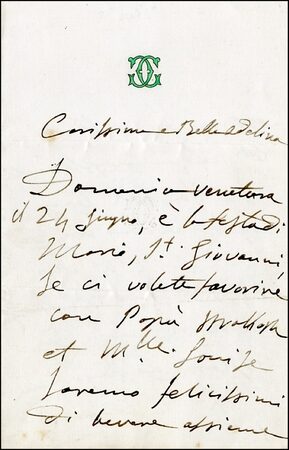 Carissima e Bella Adelina
Domenica ventura
il 24 Giugno, è la festa di
Mario, St. Giovanni,
Se ci volete favorire
con Papà Strakosh
et Mlle. Louise
saremo felicissimi
di bevere assieme